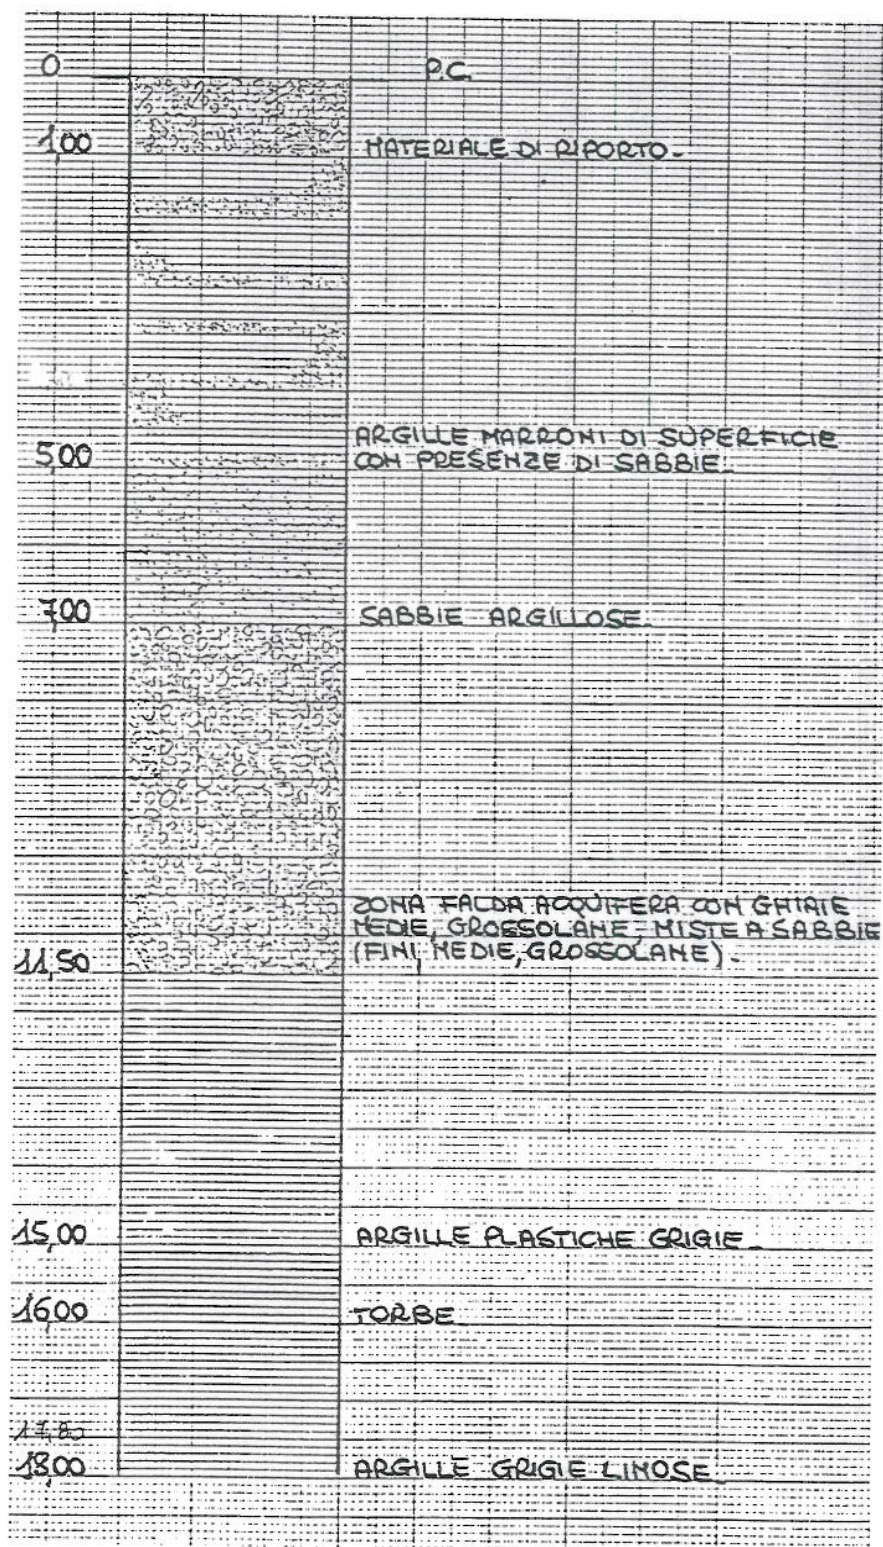 0 P.C.
1,00 MATERIALE DI RIPORTO.
ARGILLE MARRONI DI SUPERFICIE
5,00 CON PRESENZE DI SABBIE.
7,00 SABBIE ARGILLOSE.
ZONA FALDA ACQUIFERA CON GHIAIE
MEDIE, GROSSOLANE, MISTE A SABBIE
11,50 (FINI, MEDIE, GROSSOLANE).
15,00 ARGILLE PLASTICHE GRIGIE.
16,00 TORBE
17,80
18,00 ARGILLE GRIGIE LIMOSE.